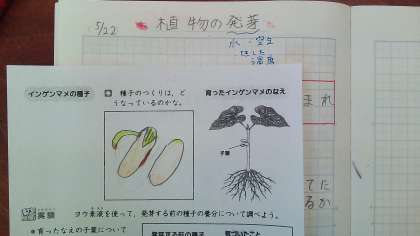 5/22
植物の発芽
水・空気
適した
温度
インゲンマメの種子
種子のつくりは、ど
うなっているのかな。
育ったインゲンマメのなえ
子葉
まれ
実験
ヨウ素液を使って、発芽する前の種子の養分について調べよう。
てた
るか
●育ったなえの子葉について
発芽する前の種子
気づいたこと